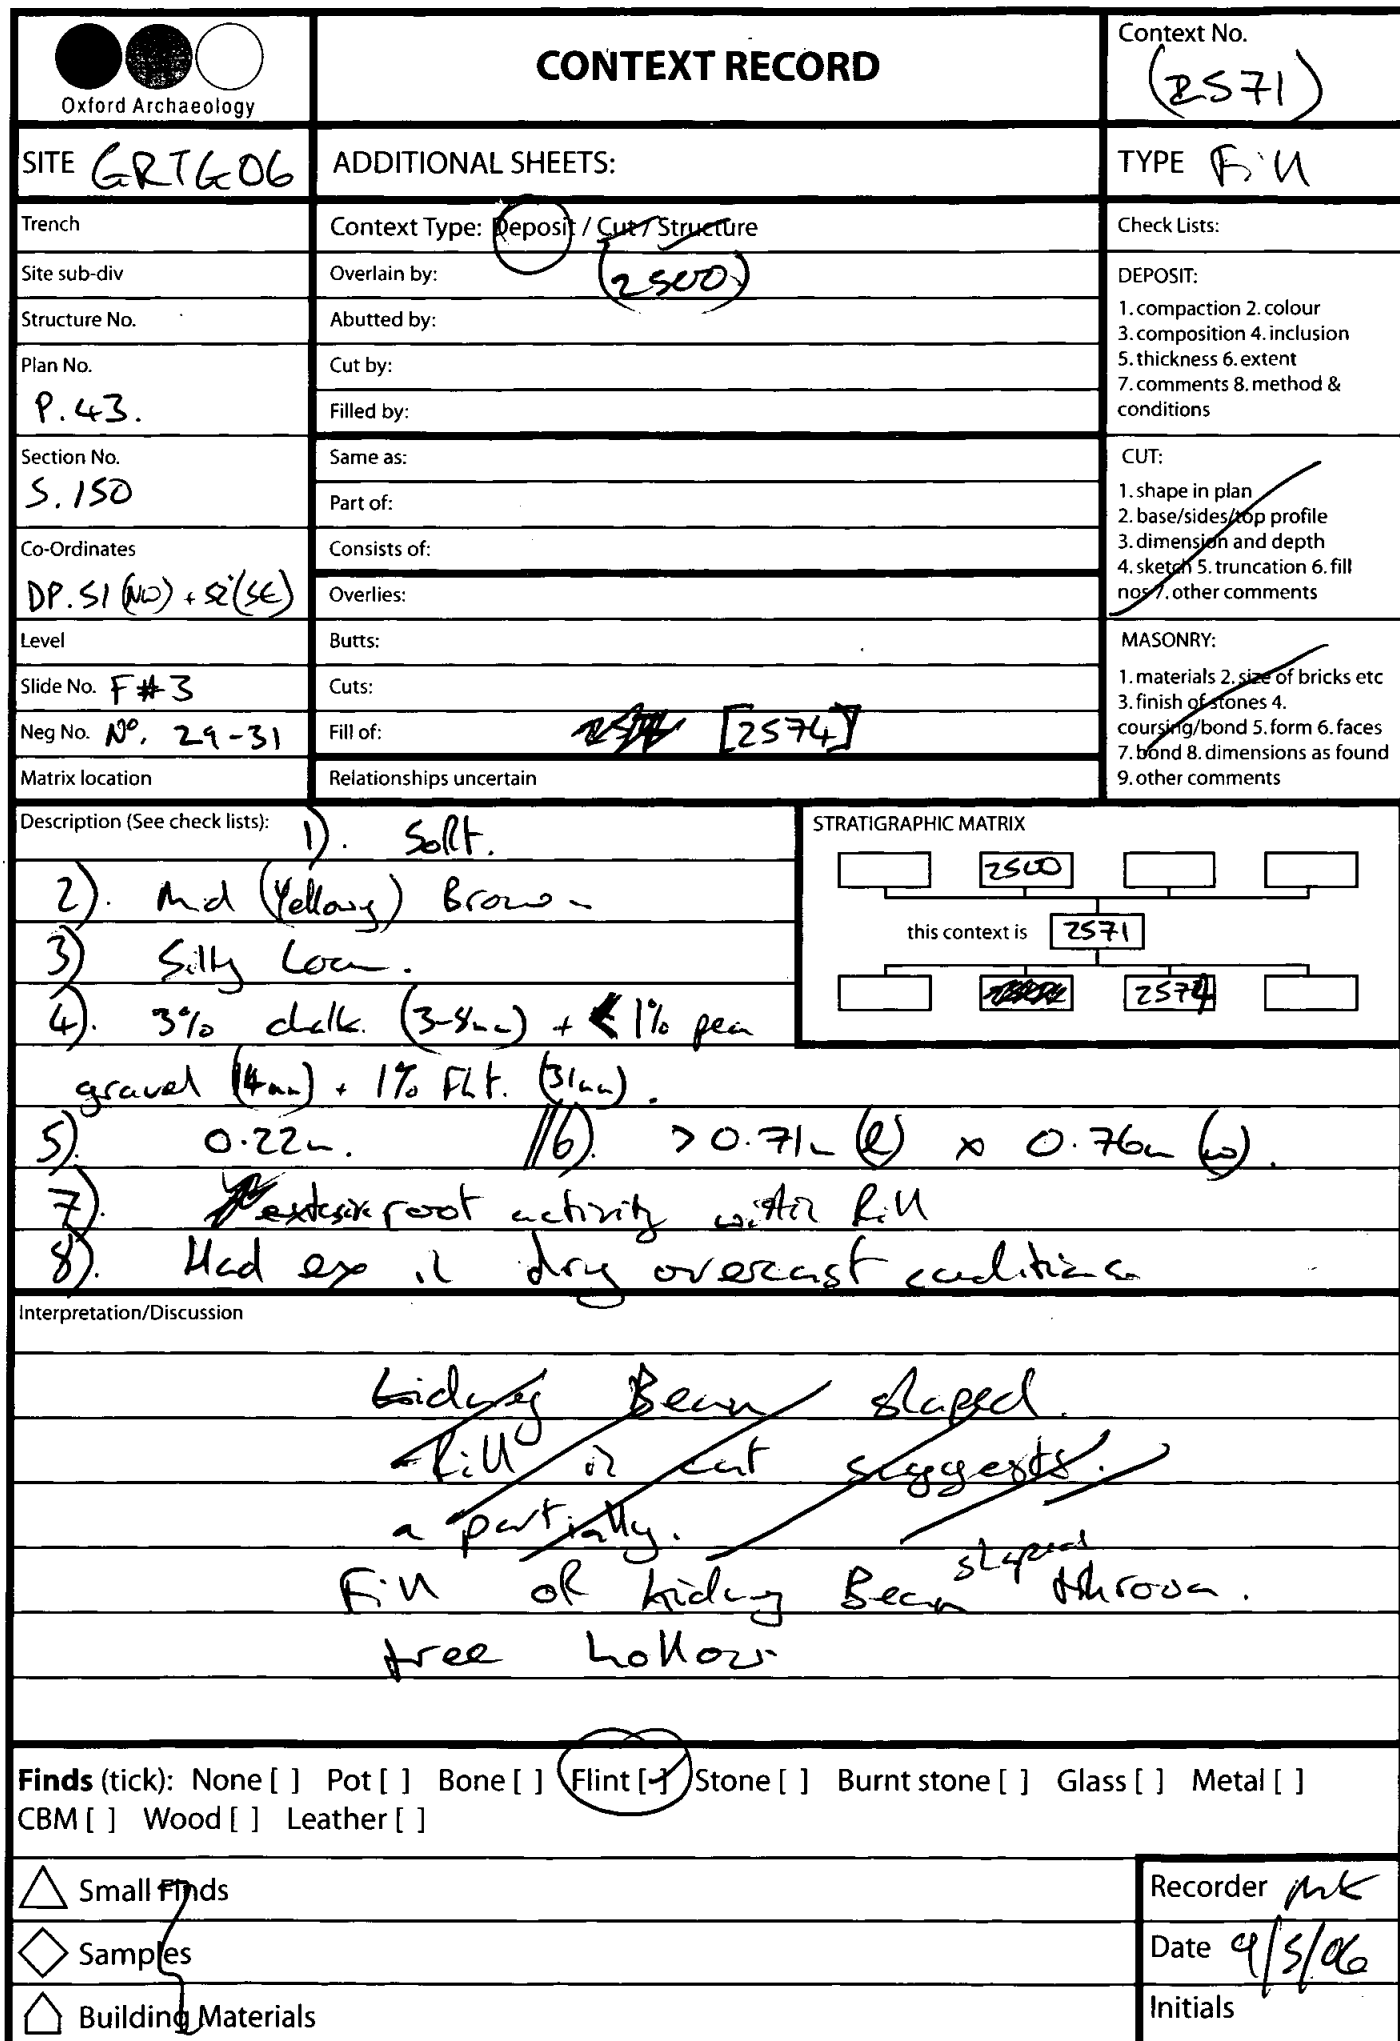 Oxford Archaeology
CONTEXT RECORD
Context No.
(2571)
SITE GRTG06
ADDITIONAL SHEETS:
TYPE Fill
Trench
Site sub-div
Structure No.
Plan No.
P.43.
Section No.
S.150
Co-Ordinates
DP.51 (NW) + 52 (SE)
Level
Slide No. F#3
Neg No. No. 29-31
Matrix location
Context Type: Deposit / Cut / Structure
Overlain by: (2500)
Abutted by:
Cut by:
Filled by:
Same as:
Part of:
Consists of:
Overlies:
Butts:
Cuts:
Fill of: [2574]
Relationships uncertain
Check Lists:
DEPOSIT:
1. compaction 2. colour
3. composition 4. inclusion
5. thickness 6. extent
7. comments 8. method &
conditions
CUT:
1. shape in plan
2. base/sides/top profile
3. dimension and depth
4. sketch 5. truncation 6. fill
nos 7. other comments
MASONRY:
1. materials 2. size of bricks etc
3. finish of stones 4.
coursing/bond 5. form 6. faces
7. bond 8. dimensions as found
9. other comments
Description (See check lists): 1). Soft.
2). Mid (Yellowy) Brown
3) Silty Loam.
4). 3% chalk. (3-8mm) + <1% pea
gravel (14mm) + 1% Flt. (31mm).
5). 0.22m. // 6). >0.71m (l) x 0.76m (w).
7). extensive root activity within fill
8). Had exp in dry overcast conditions
STRATIGRAPHIC MATRIX
2500
this context is 2571
2574
Interpretation/Discussion
kidney Bean shaped
fill in cut suggests.
a partially.
Fill of kidney Bean shaped thrown.
tree hollow
Finds (tick): None [ ] Pot [ ] Bone [ ] Flint [✓] Stone [ ] Burnt stone [ ] Glass [ ] Metal [ ]
CBM [ ] Wood [ ] Leather [ ]
Small Finds
Samples
Building Materials
Recorder
Date 9/5/06
Initials